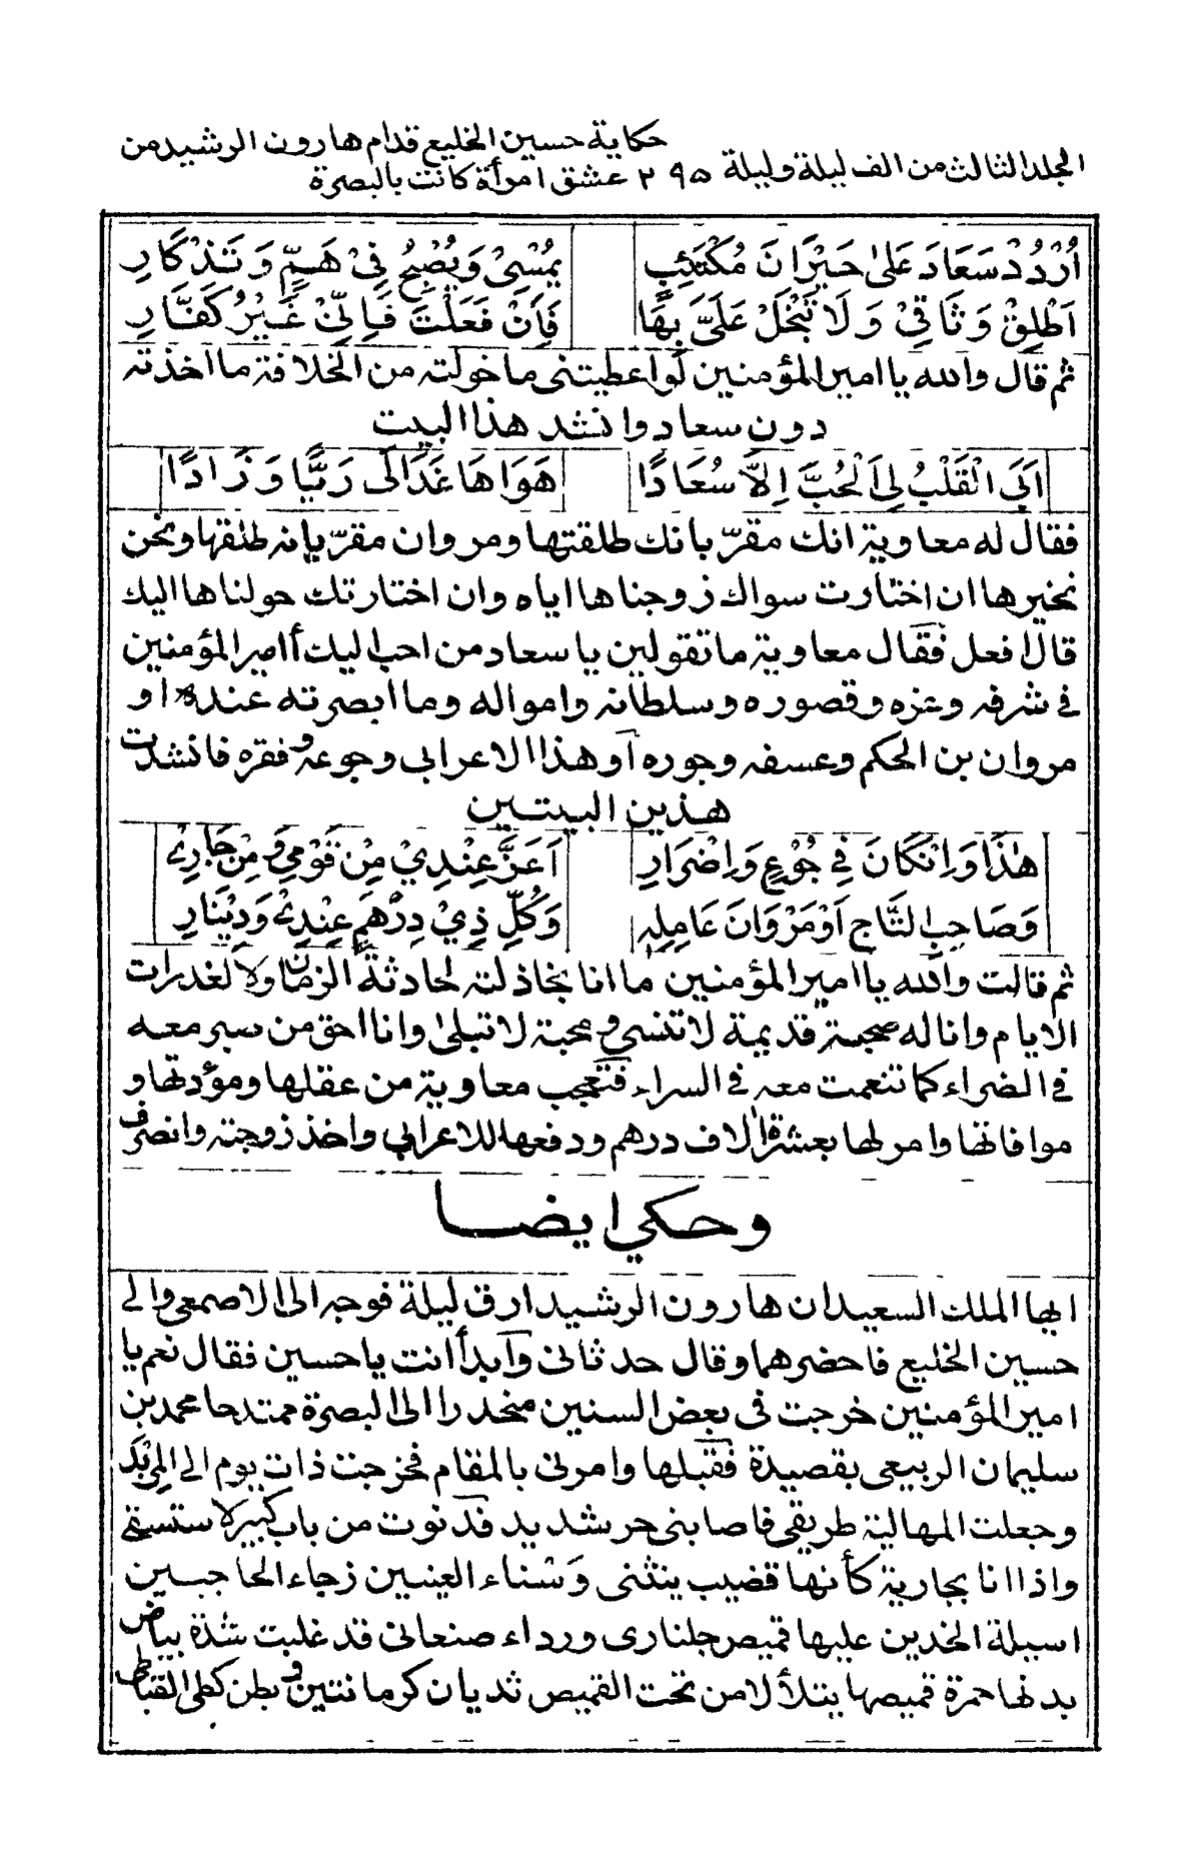 حكاية حسين الخليع قدام هارون الرشيد من
المجلد الثالث من الف ليلة وليلة ٢٩٥ عشق امرأة كانت بالبصرة
اُرْدُدْ سَعَادَ عَلىٰ حَيْرَانَ مُكْتَئِبٍ يُمْسِيْ وَيُصْبِحُ فِيْ هَمٍّ وَتَذْكَارِ
اَطْلِقْ وَثَاقِيْ وَلَا تَبْخَلْ عَلَيَّ بِهَا فَاَنْ فَعَلْتَ فَاِنِّيْ غَيْرُ كَفَّارِ
ثم قال والله يا امير المؤمنين لو اعطيتنى ما خولته من الخلافة ما اخذته
دون سعاد وانشد هذا البيت
اَبَى الْقَلْبُ لِيْ اَلْحُبَّ اِلاَّ سُعَادًا هَوَاهَا غَدَا لَى رَيًّا وَزَادًا
فقال له معاوية انك مقرّ بانك طلقتها ومروان مقرّ بانه طلقها ونحن
نخيرها ان اختارت سواك زوجناها اياه وان اختارتك حولناها اليك
قال افعل فقال معاوية ما تقولين يا سعاد من احب اليك أامير المؤمنين
فى شرفه وعزه وقصوره وسلطانه وامواله وما ابصرته عنده او
مروان بن الحكم وعسفه وجوره او هذا الاعرابى وجوعه وفقره فانشدت
هذين البيتين
هٰذَا وَاِنْ كَانَ فِي جُوْعٍ وَاِضْرَارِ اَعَزَّ عِنْدِيْ مِنْ قَوْمِيْ وَمِنْ جَارِيْ
وَصَاحِبِ التَّاجِ اَوْ مَرْوَانَ عَامِلِهٖ وَكُلِّ ذِيْ دِرْهَمٍ عِنْدِيْ وَدِيْنَارِ
ثم قالت والله يا امير المؤمنين ما انا بخاذلته لحادثة الزمان ولا لغدرات
الايام وانا له صحبة قديمة لا تنسى ومحبة لا تبلى وانا احق من صبر معه
فى الضراء كما تنعمت معه فى السراء فتعجب معاوية من عقلها ومؤدتها و
موافاتها وامر لها بعشرة الاف درهم ودفعها للاعرابى واخذ زوجته وانصرف
وحكي ايضا
ايها الملك السعيد ان هارون الرشيد ارق ليلة فوجه الى الاصمعى والى
حسين الخليع فاحضرهما وقال حدثانى وأبدأ انت يا حسين فقال نعم يا
امير المؤمنين خرجت فى بعض السنين منحدرا الى البصرة ممتدحا محمد بن
سليمان الربيعى بقصيدة فقبلها وامرنى بالمقام فخرجت ذات يوم الى المِرْبَد
وجعلت المهالية طريقى فاصابنى حر شديد فدنوت من باب كبير لاستسقى
واذا انا بجارية كأنها قضيب ينثنى وَسْناء العينين زجاء الحاجبين
اسيلة الخدين عليها قميص جلنارى ورداء صنعانى قد غلبت شدة بياض
بدنها حمرة قميصها يتلألا من تحت القميص ثديان كرمانتين وبطن كطى القباطى